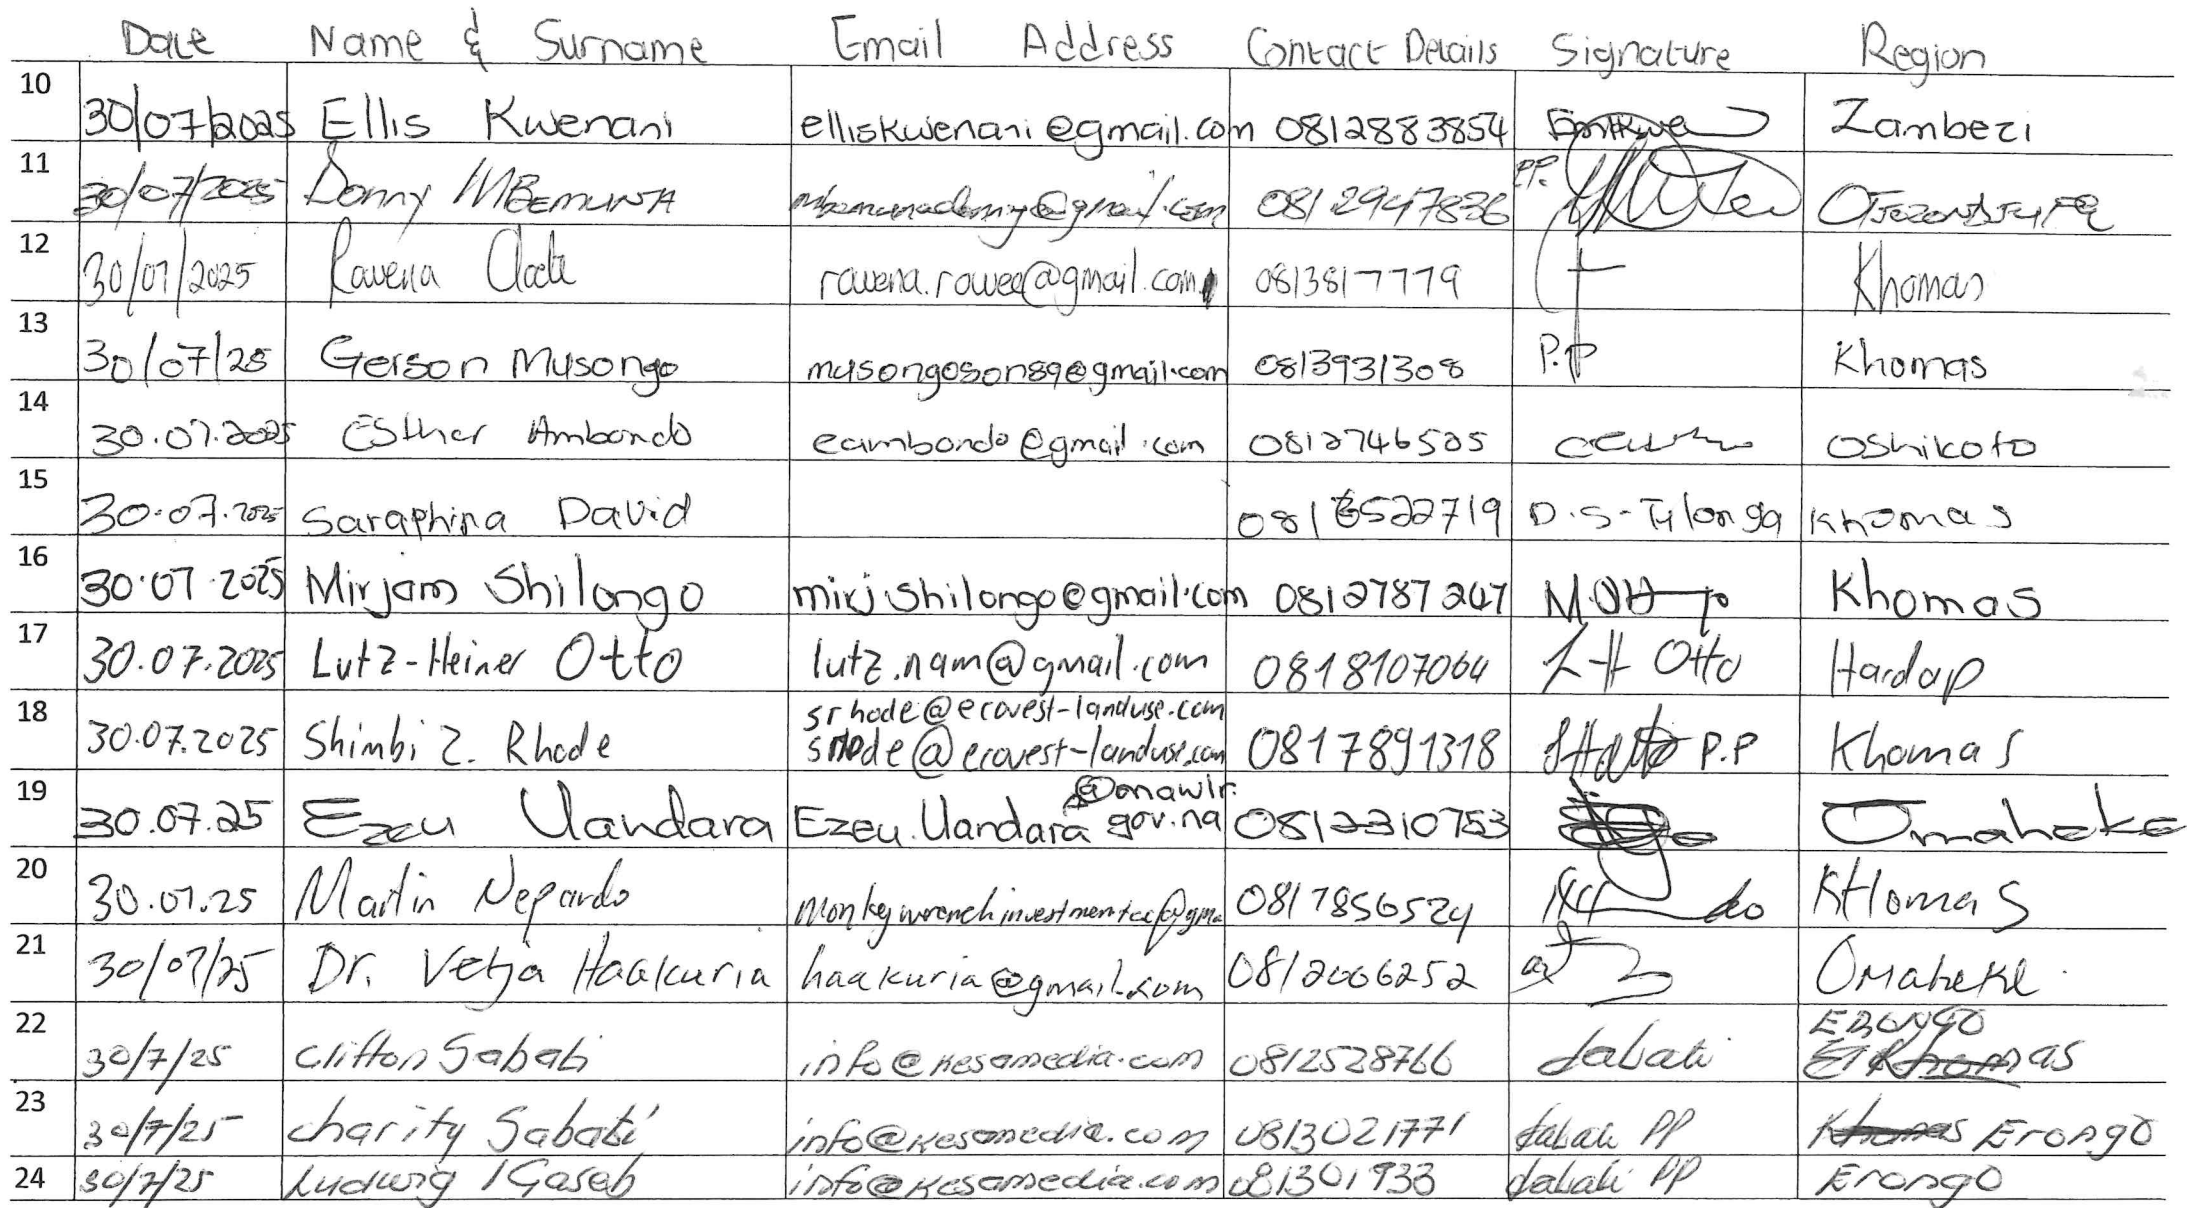 Date Name & Surname Email Address Contact Details Signature Region
10 30/07/2025 Ellis Kwenani elliskwenani@gmail.com 0812883854 Zambezi
11 30/07/2025 Donny MBEMUNA mbemunadonny@gmail.com 0812947836 PP. OTJOZONDJUPA
12 30/07/2025 Ravena ravena.rowee@gmail.com 0813817779 Khomas
13 30/07/25 Gerson Musongo musongoson89@gmail.com 0813931308 P.P Khomas
14 30.07.2025 Esther Ambondo eambondo@gmail.com 0812746525 Oshikoto
15 30.07.2025 Saraphina David 0816522719 D.S-Tulonga Khomas
16 30.07.2025 Mirjam Shilongo mirjshilongo@gmail.com 0812787247 Khomas
17 30.07.2025 Lutz-Heiner Otto lutz.nam@gmail.com 0818107064 L-H Otto Hardap
srhode@ecovest-landuse.com
18 30.07.2025 Shimbi Z. Rhode srhode@ecovest-landuse.com 0817891318 P.P Khomas
@mawlr.
19 30.07.25 Ezeu Uandara Ezeu.Uandara gov.na 0812310753 Omaheke
20 30.07.25 Martin Nepando monkeywrenchinvestmentcc@gma 0817856524 KHomas
21 30/07/25 Dr. Vetja Haakuria haakuria@gmail.com 0812006252 Omaheke
ERONGO
22 30/7/25 Clifton Sabati info@kesamedia.com 0812528766 Sabati Khomas
23 30/7/25 Charity Sabati info@kesamedia.com 0813021771 Sabati PP Khomas Erongo
24 30/7/25 Ludwig !Gaseb info@kesamedia.com 081301933 Sabati PP Erongo